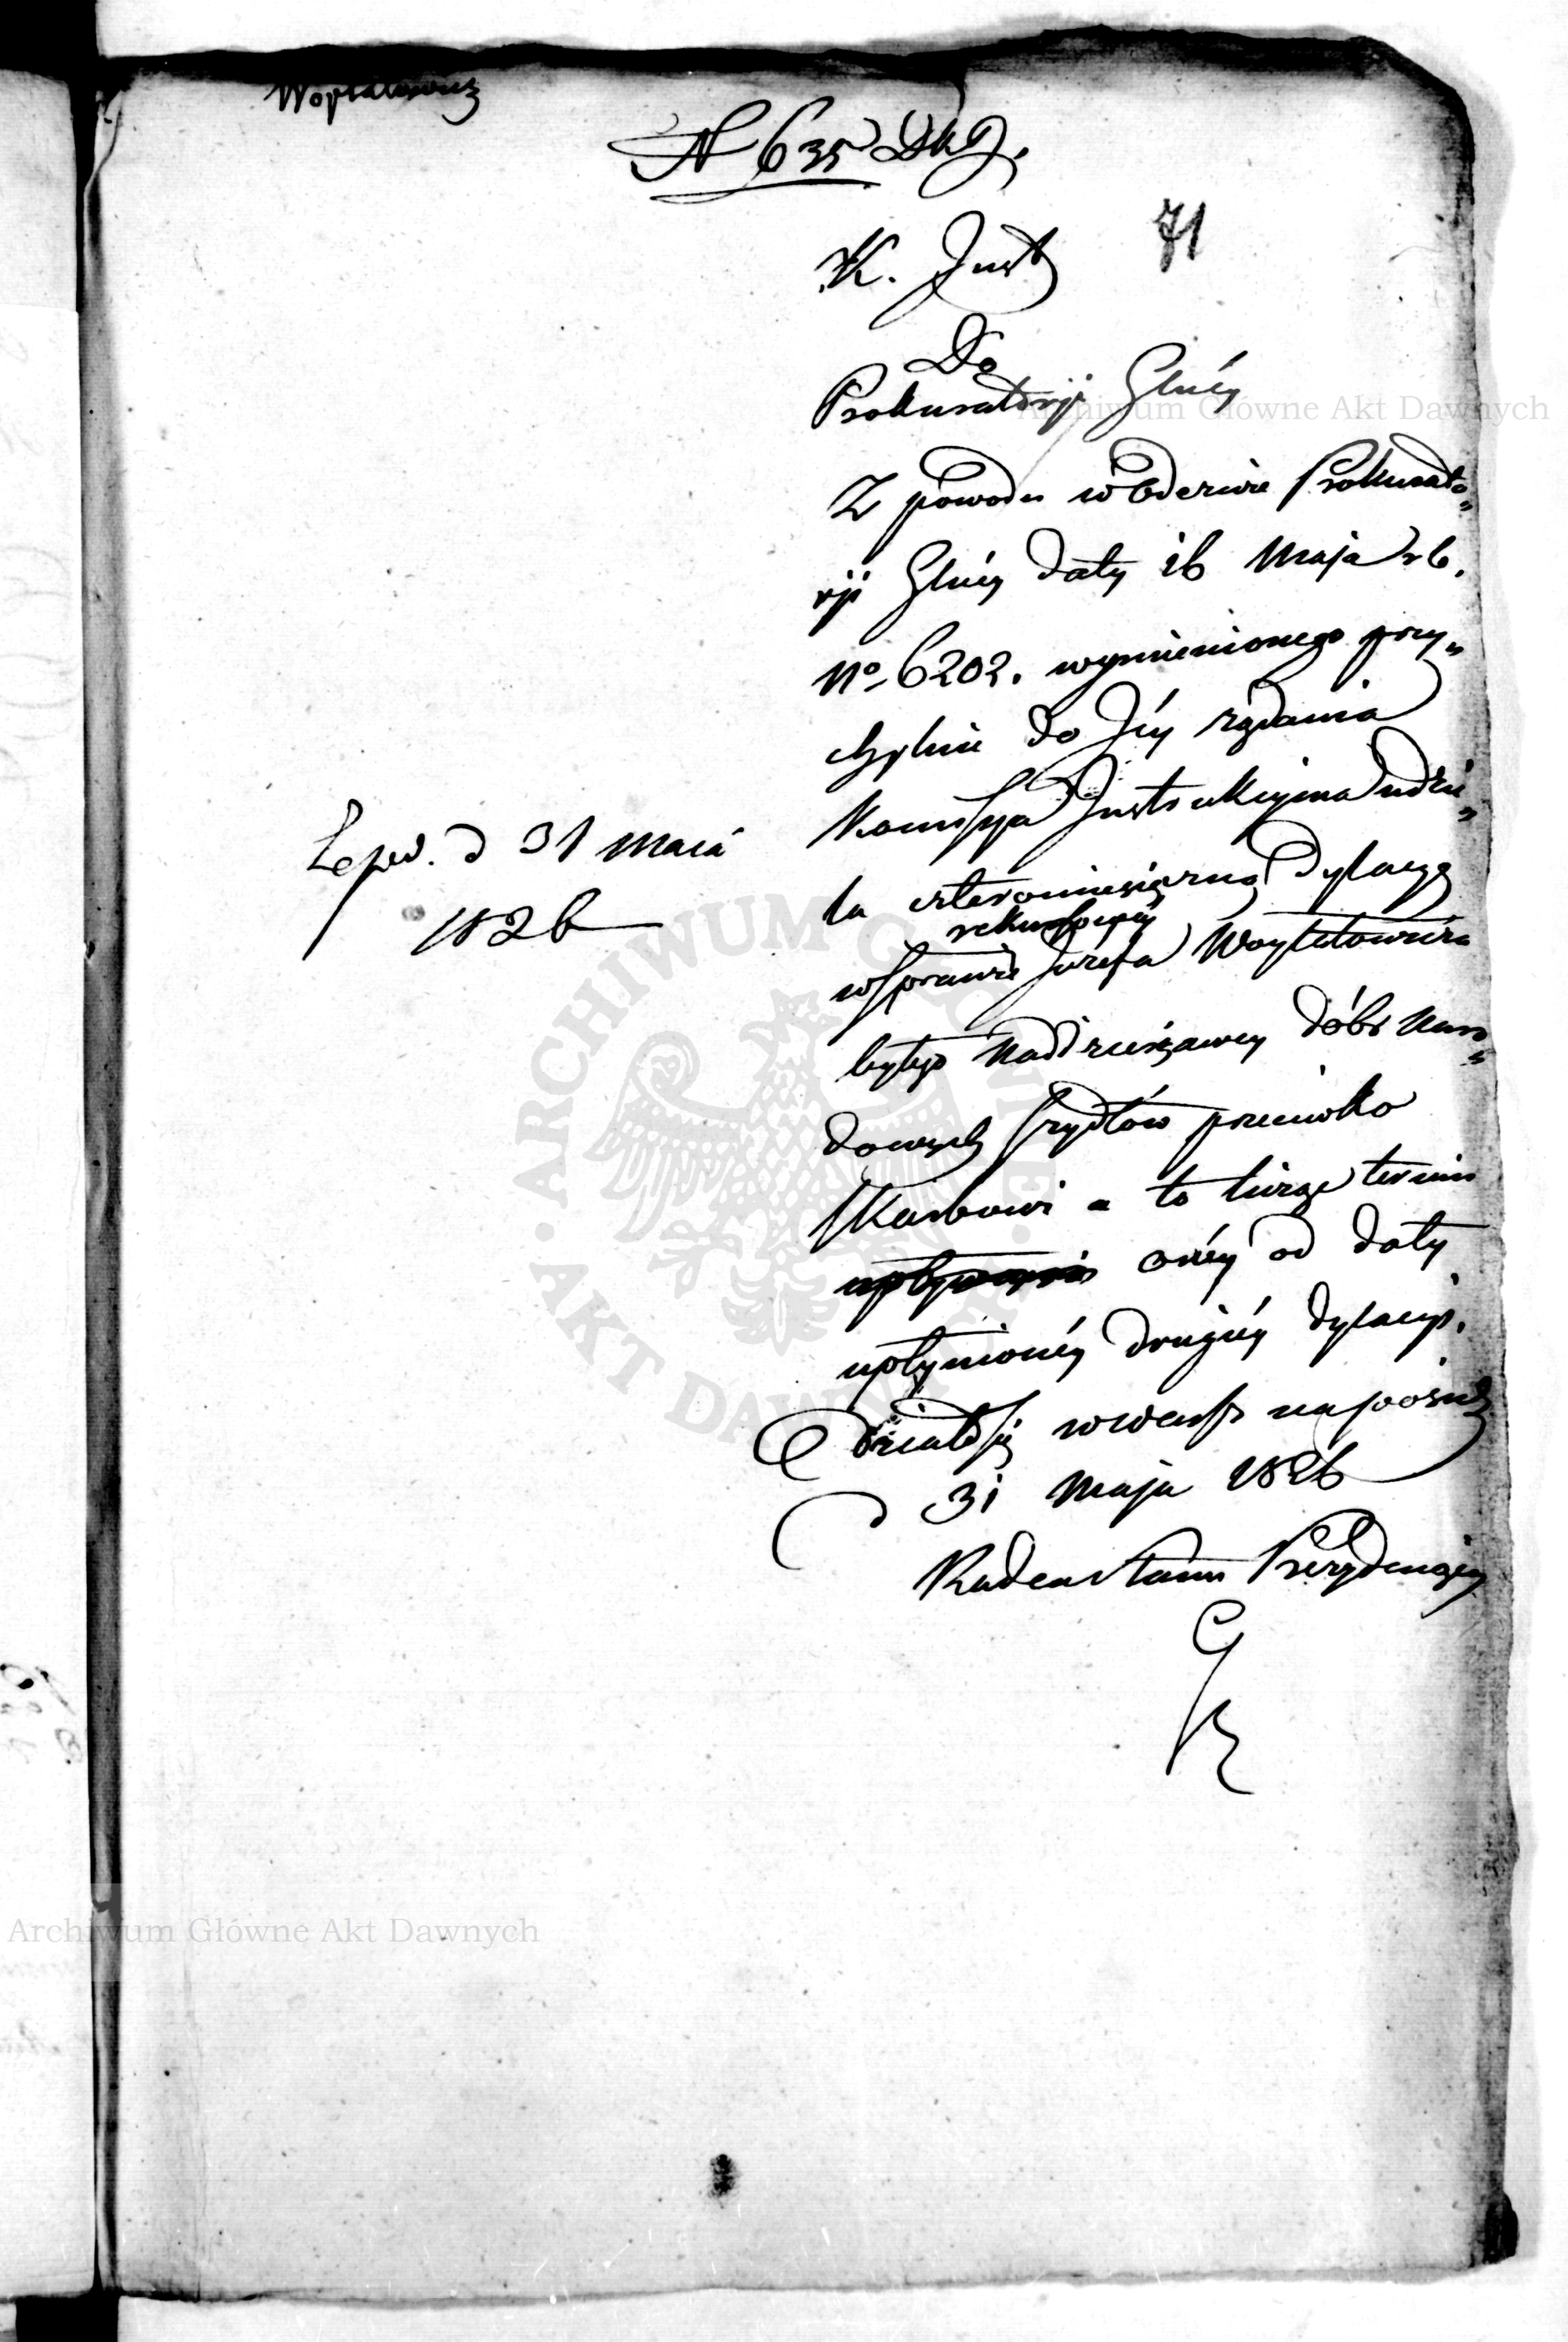 Woytatowicz
N 635 DKJ.
71
K. Just
Do
Prokuratoryi Głnéy
Z powodu w Odezwie Prokurato„
ryi Głnéy daty 16 Maja rb.
No 6202. wymienionego przy„
chylnie do Jéy żądania
Kommissya Instrukcyina udzie„
la czteromiesięczną Dylacyą
rekursowéy
w sprawie Józefa Woytatowicza
byłego Naddzierżawcy dóbr Naro„
dowych Frydłów przeciwko
Skarbowi a to licząc termin
onéy od daty
upłynionéy drugiéy dylacyi.
Działo się na posiedz
d 31 Maja 1826
Radca Stanu Prezydujący
Exped. d 31 Maia
1826
Archiwum Główne Akt Dawnych
ARCHIWUM GŁÓWNE
AKT DAWNYCH
Archiwum Główne Akt Dawnych